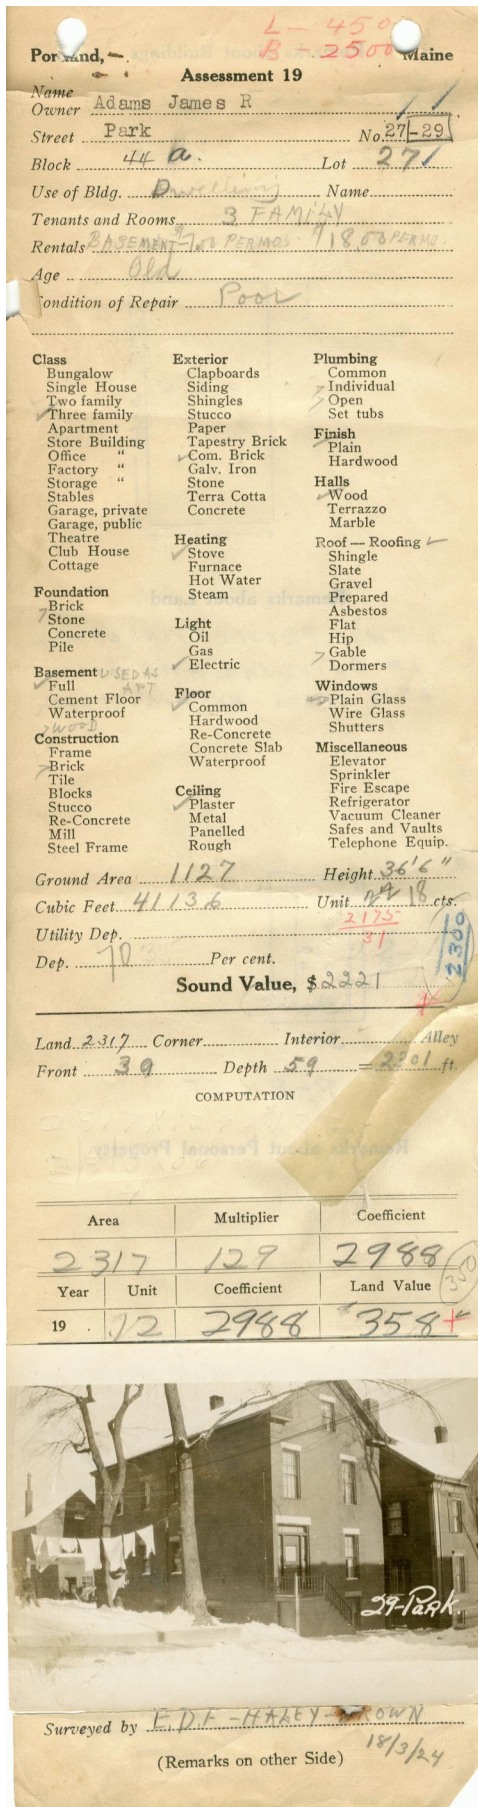 L - 4500
B - 2500
Portland, Maine
Assessment 19
Name
Owner Adams James R
Street Park No. 27-29
Block 44 a. Lot 271
Use of Bldg. Dwelling Name
Tenants and Rooms 3 FAMILY
Rentals BASEMENT $7.00 PERMOS. $18.00 PERMO.
Age Old
Condition of Repair Poor
Class
Bungalow
Single House
Two family
✓ Three family
Apartment
Store Building
Office "
Factory "
Storage "
Stables
Garage, private
Garage, public
Theatre
Club House
Cottage
Foundation
Brick
Stone
Concrete
Pile
Basement USED AS APT
✓ Full
Cement Floor
Waterproof
WOOD
Construction
Frame
Brick
Tile
Blocks
Stucco
Re-Concrete
Mill
Steel Frame
Exterior
Clapboards
Siding
Shingles
Stucco
Paper
Tapestry Brick
✓ Com. Brick
Galv. Iron
Stone
Terra Cotta
Concrete
Heating
✓ Stove
Furnace
Hot Water
Steam
Light
Oil
Gas
✓ Electric
Floor
✓ Common
Hardwood
Re-Concrete
Concrete Slab
Waterproof
Ceiling
✓ Plaster
Metal
Panelled
Rough
Plumbing
Common
Individual
Open
Set tubs
Finish
Plain
Hardwood
Halls
✓ Wood
Terrazzo
Marble
Roof — Roofing ✓
Shingle
Slate
Gravel
Prepared
Asbestos
Flat
Hip
Gable
Dormers
Windows
Plain Glass
Wire Glass
Shutters
Miscellaneous
Elevator
Sprinkler
Fire Escape
Refrigerator
Vacuum Cleaner
Safes and Vaults
Telephone Equip.
Ground Area 1127 Height 36'6"
Cubic Feet 41136 Unit 18 cts.
2175
31
2300
Utility Dep.
Dep. 70 Per cent.
Sound Value, $2221
Land 2317 Corner Interior Alley
Front 39 Depth 59 = 2301 ft.
COMPUTATION
Area Multiplier Coefficient
2317 129 2988
350
Year Unit Coefficient Land Value
19 . 12 2988 358
29-PARK.
Surveyed by E.D.F - HALEY - BROWN
18/3/24
(Remarks on other Side)